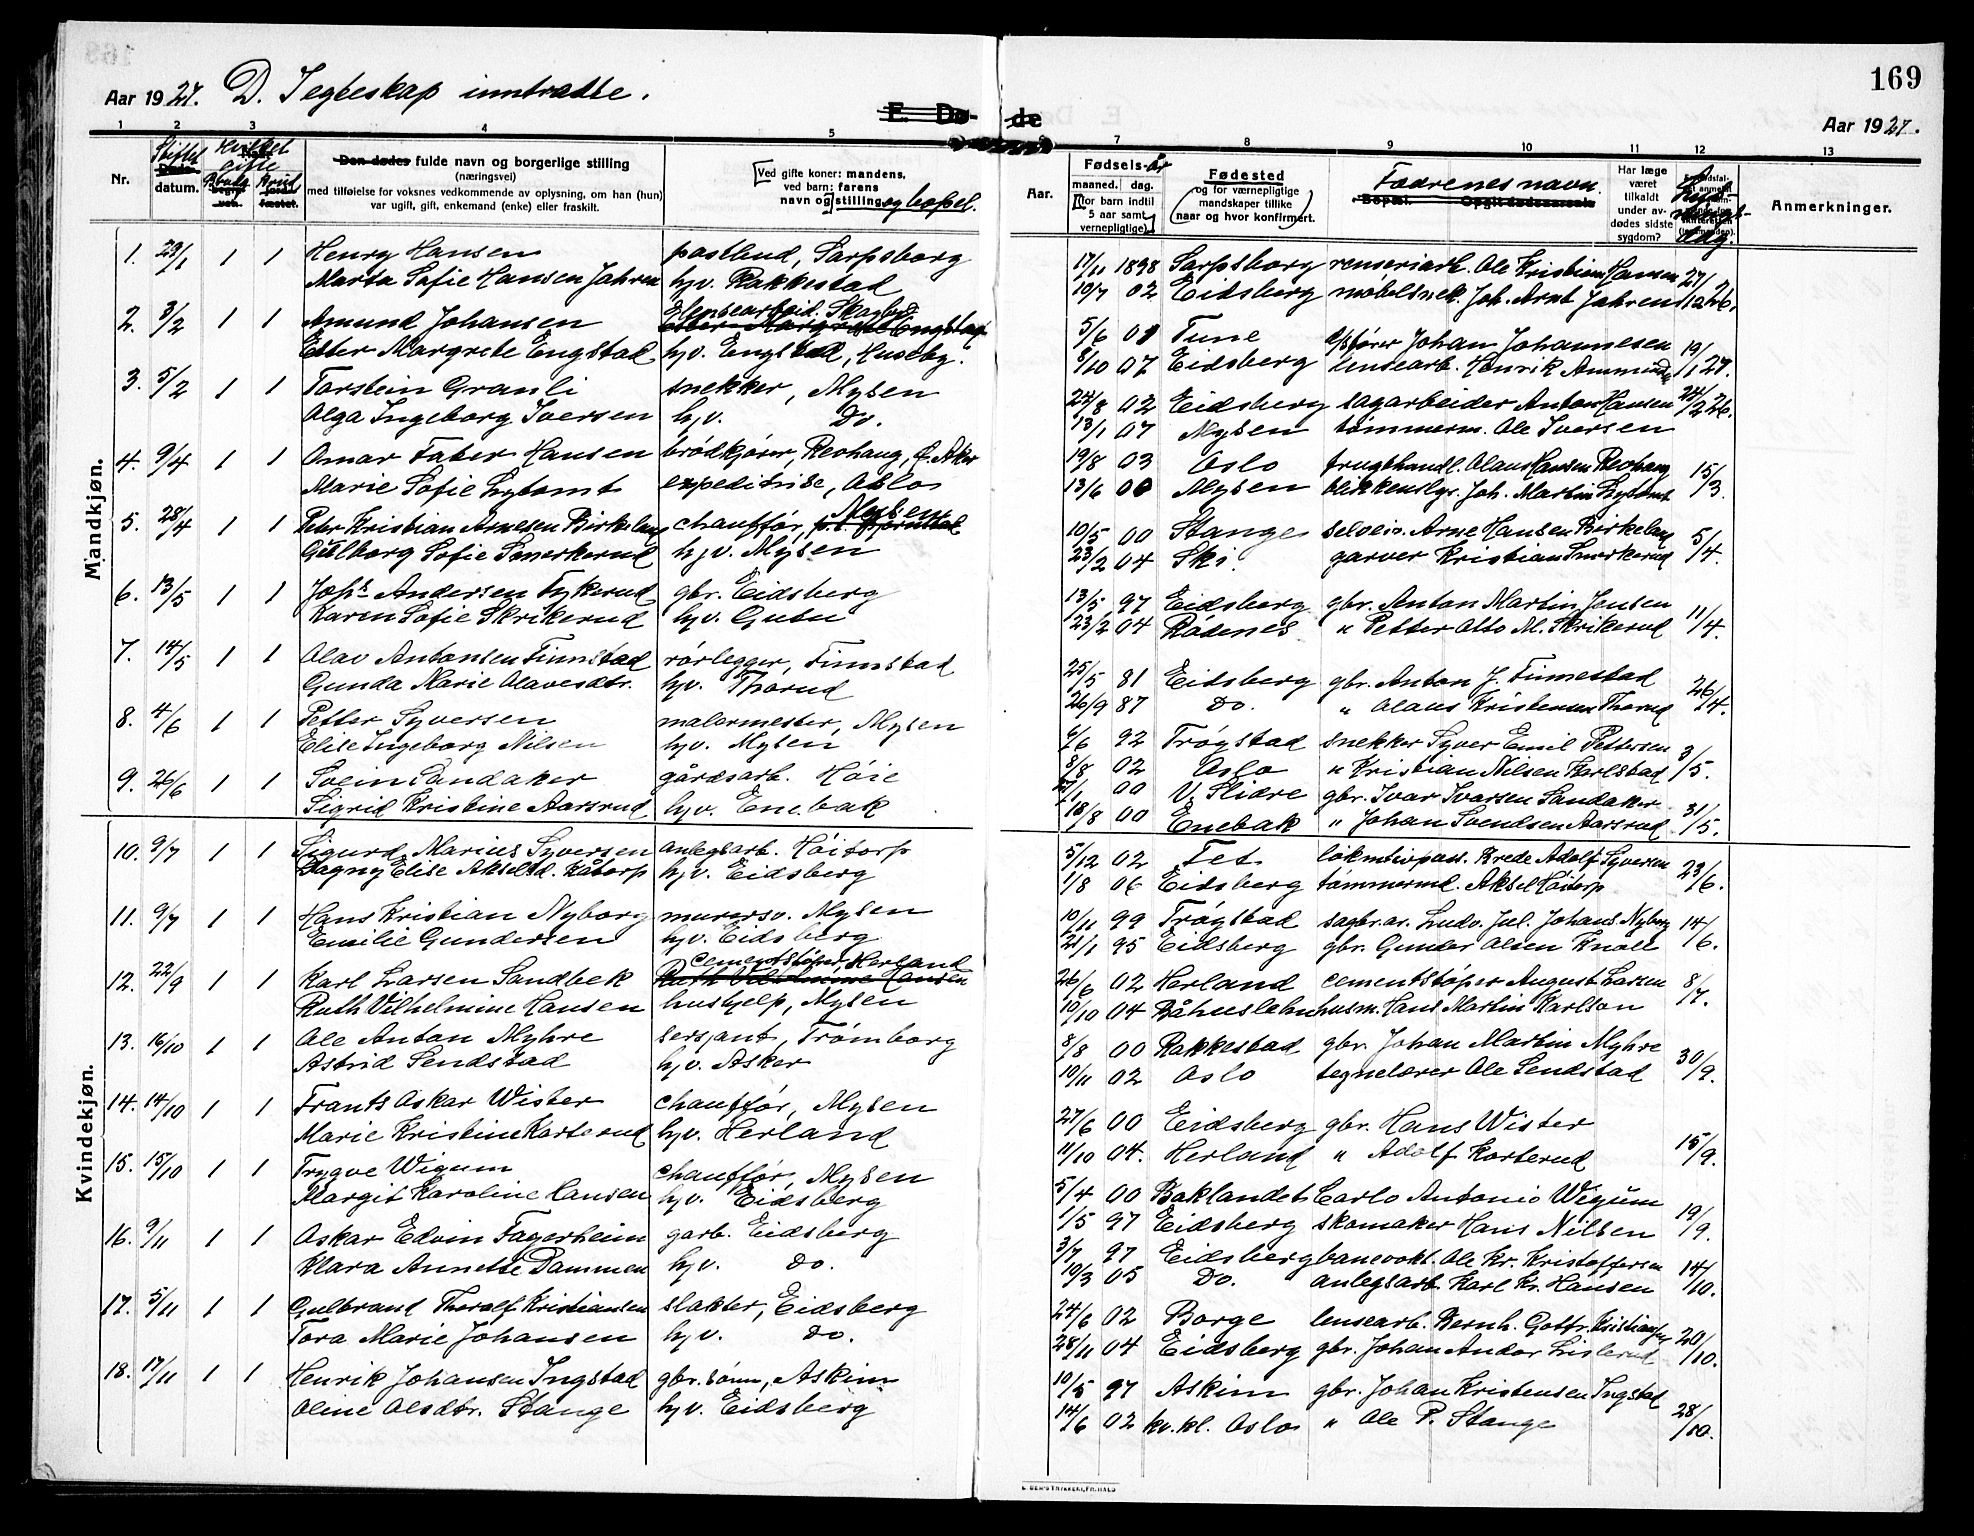 169
Aar 1927. D. Tegteskap inntradte.
E. Dø- de
Aar 1927.
1 2 3 4 5 7 8 9 10 11 12 13
Nr.
Stiftet
Døds-
datum.
Hvilket
Gifte
Den dødes fulde navn og borgerlige stilling
(næringsvei)
med tilføielse for voksnes vedkommende av oplysning, om han (hun)
var ugift, gift, enkemand (enke) eller fraskilt.
Ved gifte koner: mandens,
ved barn: farens
navn og stilling og bopel.
Aar.
Fødsels- år
maaned. dag.
For barn indtil
5 aar samt
vernepligtige)
Fødested
(og for værnepligtige
mandskaper tillike
naar og hvor konfirmert.
Fædrenes navn.
Bopæl. Opgit dødsaarsak.
Har læge
været
tilkaldt
under av-
dødes sidste
sygdom?
Anmerkninger.
Mandkjøn.
1. 29/1 1 1 Henry Hansen postbud, Sarpsborg 17/11 1898 Sarpsborg renseriarb. Ole Kristian Hansen 27/
Marta Sofie Hansen Jahren hjv. Rakkestad 10/7 02 Eidsberg møbelsnek. Joh. Arnt Jahren 12 26.
2. 3/2 1 1 Amund Johansen Skarbu 5/6 01 Tune Johan Johannesen 19/
Ester Margrete Engstad hjv. Engstad, Huseby. 8/10 07 Eidsberg lensearb. Henrik 1 27.
3. 5/2 1 1 Torstein Granli snekker, Mysen 24/8 02 Eidsberg sagarbeider Anton Hansen 24/2 26.
Olga Ingeborg Iversen hjv. Do. 13/1 07 Mysen tømmerm. Ole Iversen
4. 9/4 1 1 Omar Faber Hansen brødkjører, Reohaug, Ø. Aker 19/8 03 Oslo frugthandl. Olaus Hansen Reohaug 15/3.
Marie Sofie Lytomt expeditrise, Oslo 13/6 00 Mysen blikkenslgr. Joh. Martin Lytomt
5. 28/4 1 1 Peter Kristian Arnesen Birkeland chauffør, Mysen 10/5 00 Stange selveir. Arne Hansen Birkeland 5/4.
Gulborg Sofie Smerkerud hjv. Mysen 23/2 04 Ski. garver Kristian Smerkerud
6. 13/5 1 1 Johs. Andersen Fykerud gbr. Eidsberg 13/5 97 Eidsberg gbr. Anton Martin Jensen 11/4.
Karen Sofie Skrikerud hjv. Gutu 23/2 04 Rødenes " Petter Otto M. Skrikerud
7. 14/5 1 1 Olav Antonsen Finnstad rørlegger, Finnstad 25/5 81 Eidsberg gbr. Anton J. Finnestad 26/4.
Gunda Marie Olavesdtr. hjv. Thorud 26/9 87 Do. " Olaus Kristensen Thorud
8. 4/6 1 1 Petter Syversen malermester, Mysen 6/6 92 Trøgstad snekker Syver Emil Pettersen 3/5.
Elise Ingeborg Nilsen hjv. Mysen 8/8 02 Oslo " Kristian Nilsen Karlstad
9. 26/6 1 1 Svein Sandaker gårdsarb. Høie 00 V. Slidre gbr. Ivar Ivarsen Sandaker 31/5.
Sigrid Kristine Aarsrud hjv. Enebak 18/8 00 Enebak " Johan Svendsen Aarsrud
10. 9/7 1 1 Sigurd Marius Syversen anlegsarb. Høitorp 5/12 02 Fet Adolf Syversen 23/6.
Dagny Elise Akselsd. Håtorp hjv. Eidsberg 1/8 06 Eidsberg tømmermd. Aksel Høitorp
11. 9/7 1 1 Hans Kristian Nyborg murersv. Mysen 10/11 99 Trøgstad sagbr.ar. Ludv. Jul. Johans. Nyborg 14/6.
Emilie Gundersen hjv. Eidsberg 21/1 95 Eidsberg gbr. Gunder Olsen Knoll
12. 22/9 1 1 Karl Larsen Sandbek cementstøper, Herland 26/6 02 Herland cementstøper August Larsen 8/7.
Ruth Vilhelmine Hansen hushjelp, Mysen 10/10 04 Båhuslehn husm. Hans Martin Karlson
Kvindekjøn.
13. 16/10 1 1 Ole Anton Myhre sersjant, Trømborg 8/8 00 Rakkestad gbr. Johan Martin Myhre 30/9.
Astrid Sendstad hjv. Asker 10/11 02 Oslo tegnelærer Ole Sendstad
14. 14/10 1 1 Frants Oskar Wister chauffør, Mysen 27/6 00 Eidsberg gbr. Hans Wister 15/9.
Marie Kristine Karterud hjv. Herland 11/10 04. Herland " Adolf Karterud
15. 15/10 1 1 Trygve Wigum chauffør, Mysen 5/4 00 Baklandet Carlo Antonio Wigum 19/9.
Margit Karoline Hansen hjv. Eidsberg 1/5 97 Eidsberg skomaker Hans Nilsen
16. 9/11 1 1 Oskar Edvin Fagerheim garb. Eidsberg 3/7 97 Eidsberg banevokt. Ole Kr. Kristoffersen 14/10.
Klara Annette Dammen hjv. Do. 10/3 05 Do. anlegsarb. Karl Kr. Hansen
17. 5/11 1 1 Gulbrand Thoralf Kristiansen slakter, Eidsberg 24/6 02 Borge lensearb. Bernh. Gottfr. Kristiansen 20/10.
Tora Marie Johansen hjv. Do. 28/11 04 Eidsberg gbr. Johan Andor Lislerud
18. 17/11 1 1 Henrik Johansen Ingstad gbr.sønn, Askim 10/5 97 Askim gbr. Johan Kristensen Ingstad 28/10.
Oline Olsdtr. Stange hjv. Eidsberg 14/6 02 kv.kl. Oslo " Ole P. Stange